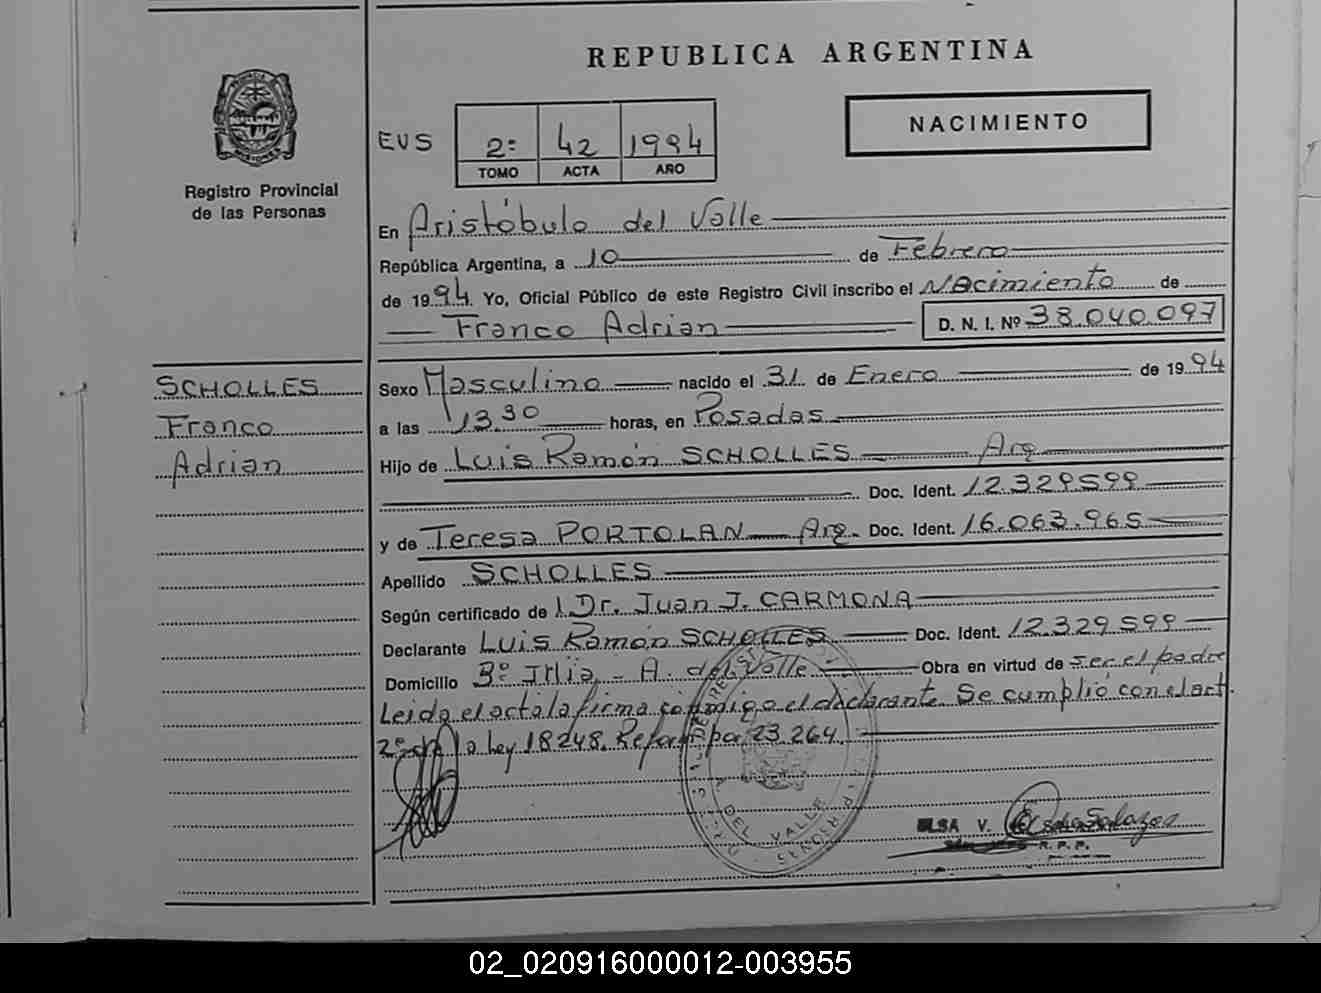 REPUBLICA ARGENTINA
NACIMIENTO
EVS
2º 42 1994
TOMO ACTA AÑO
Registro Provincial
de las Personas
En Aristóbulo del Valle
República Argentina, a 10 de Febrero
de 1994. Yo, Oficial Público de este Registro Civil inscribo el Nacimiento de
Franco Adrian D. N. I. Nº 38.040.097
SCHOLLES
Franco
Adrian
Sexo Masculino nacido el 31 de Enero de 1994
a las 13.30 horas, en Posadas
Hijo de Luis Ramón SCHOLLES Arg
Doc. Ident. 12.329.599
y de Teresa PORTOLAN Arg. Doc. Ident. 16.063.965
Apellido SCHOLLES
Según certificado de Dr. Juan J. CARMONA
Declarante Luis Ramón SCHOLLES Doc. Ident. 12.329.599
Domicilio A. del Valle Obra en virtud de ser el padre
Leida el acta la firma conmigo el declarante. Se cumplió con el art.
2º de la Ley 18248. Refor. por 23.264.
DEL VALLE
MISIONES
ELSA V.
R. P. P.
02_020916000012-003955